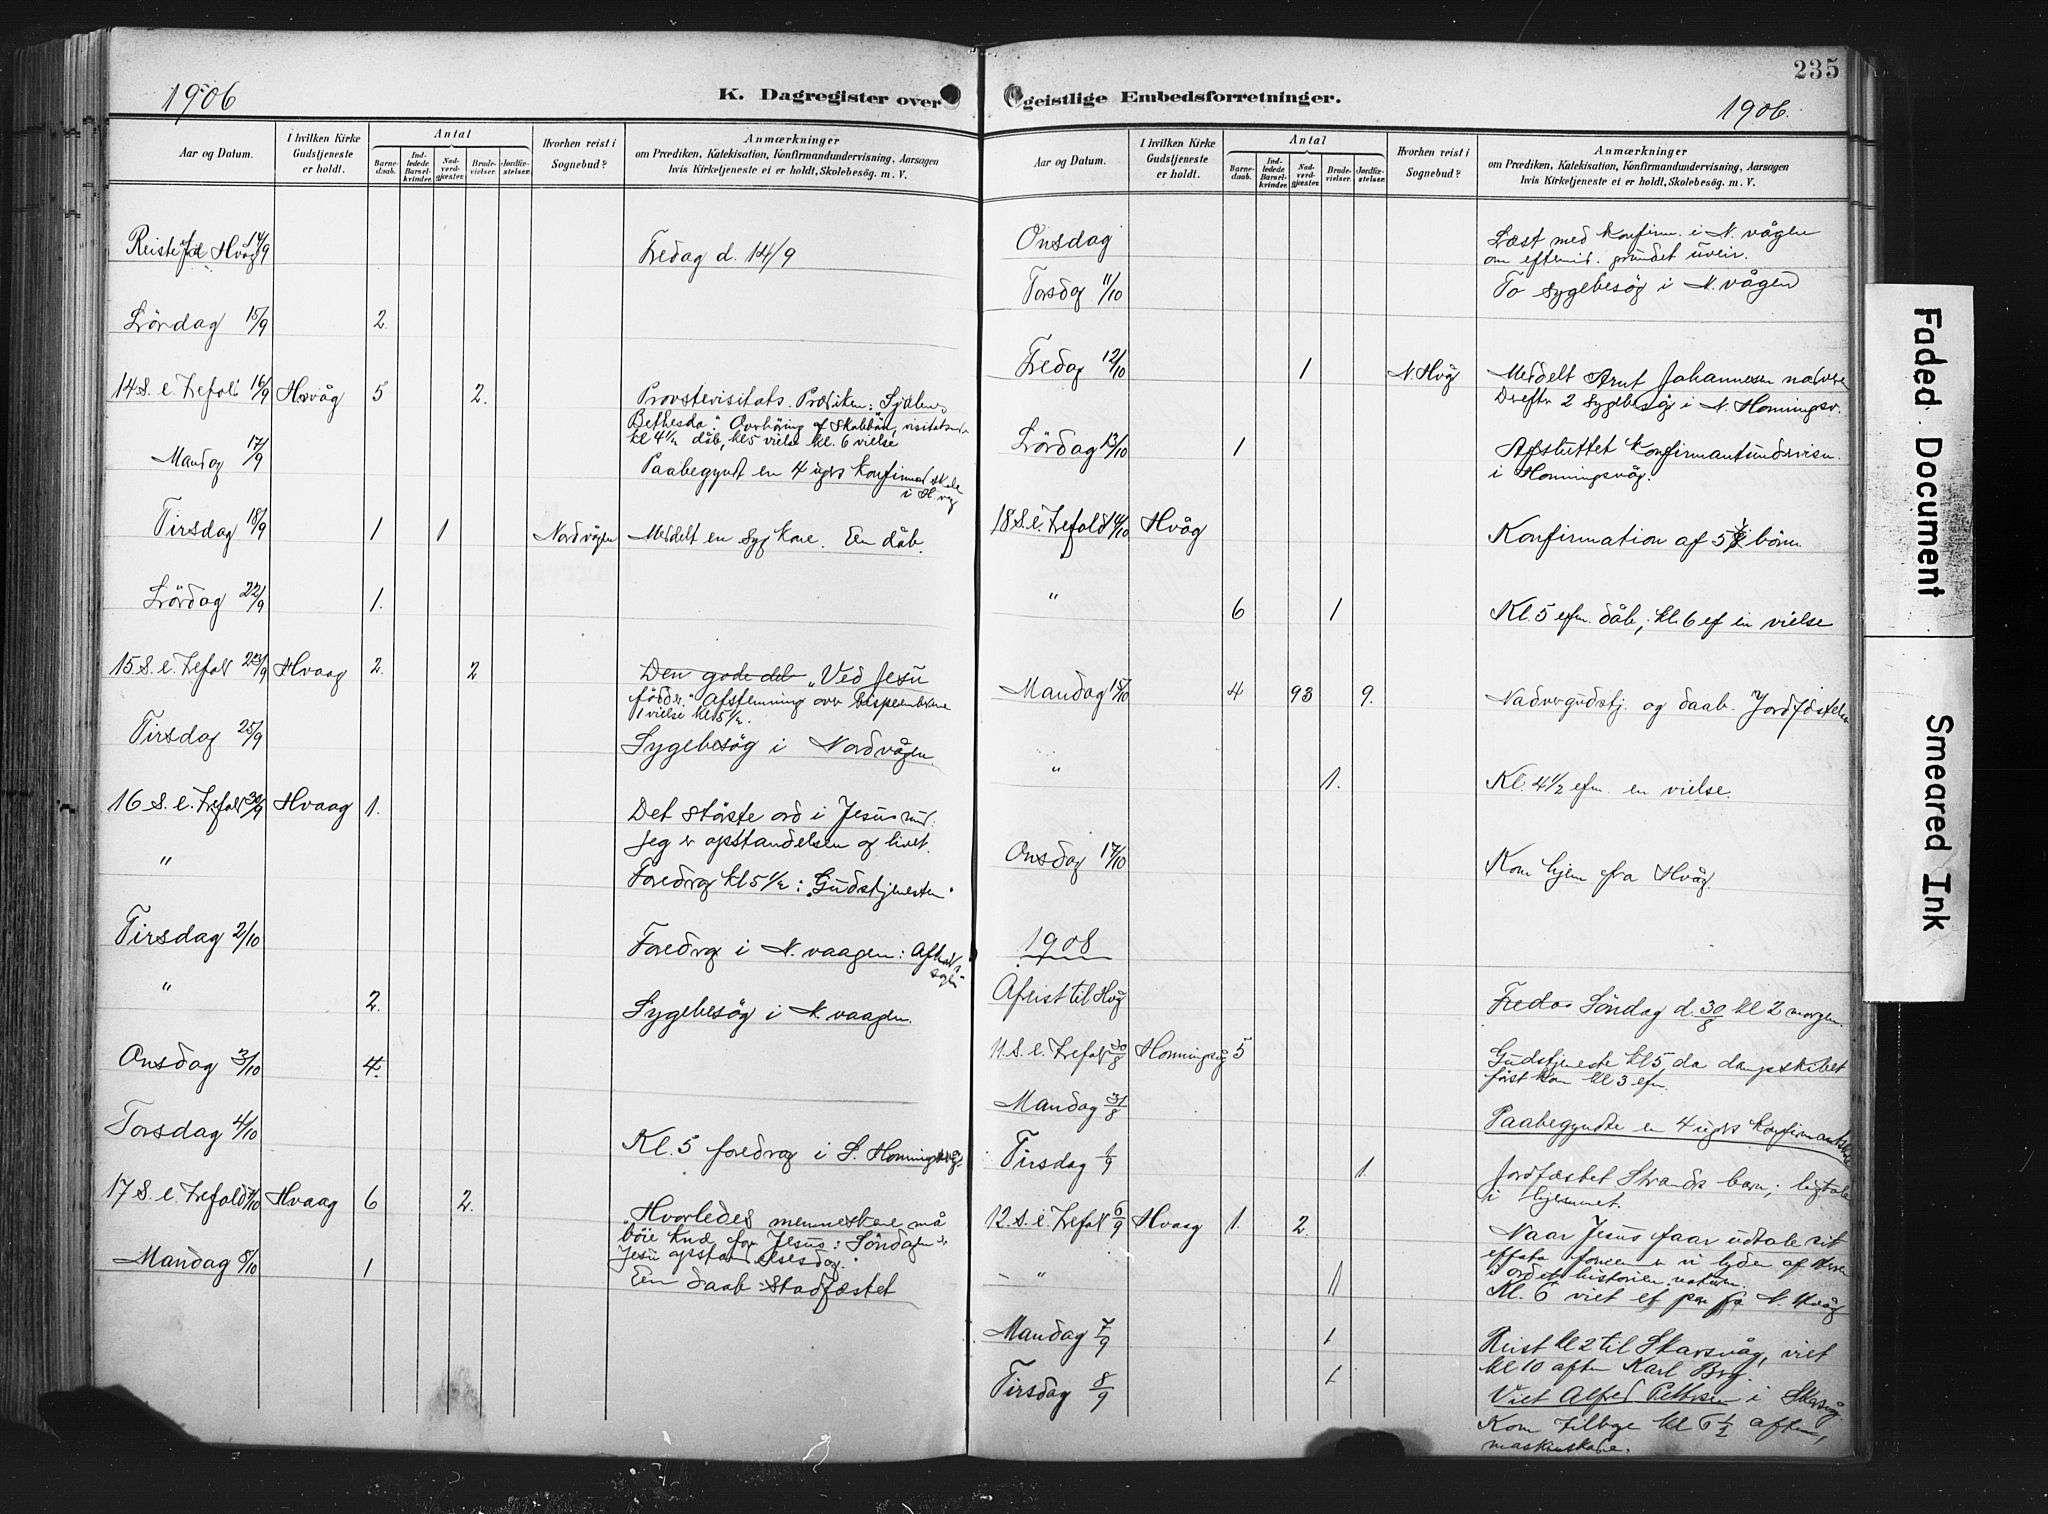 1906
K. Dagregister over
Aar og Datum.
I hvilken Kirke Gudstjeneste er holdt.
Antal
Barne-daab.
Ind-ledede Barsel-kvinder.
Nad-verd-gjester.
Brude-vielser.
Jordfæ-stelser.
Hvorhen reist i Sognebud?
Anmærkninger
om Prædiken, Katekisation, Konfirmandundervisning, Aarsagen
hvis Kirketjeneste ei er holdt, Skolebesøg. m. V.
Reiste til Hvåg 14/9 Fredag d. 14/9
Lördag 15/9 2.
14 S. e. Trefold. 16/9 Hvåg 5 2. Provstevisitats. Prædiken: Sjælens
Bethesda".
kl 4 1/2 dåb, kl 5 vielse kl. 6 vielse
Mandag 17/9 Paabegyndt en 4 ugers konfirmand skole
i H. våg
Tirsdag 18/9 1 1 Nordvågen Meddelt en syg kone. En dåb.
Lördag 22/9 1.
15 S. e. Trefol 23/9 Hvaag 2. 2 Den gode del "Ved Jesu
födder." Afstemning over
1 vielse kl 5 1/2.
Tirsdag 25/9 Sygebesög i Nordvågen.
16 S. e. Trefol 30/9 Hvaag 1. Det störste ord i Jesus
Jeg er opstandelsen og livet.
" Foredrag kl 5 1/2: "Gudstjenesten"
Tirsdag 2/10 Foredrag i N. vaagen:
" 2. Sygebesög i N. vaagen.
Onsdag 3/10 4.
Torsdag 4/10 Kl. 5 foredrag i S. Honningsvåg.
17 S. e. Trefold 7/10 Hvaag 6 2. "Hvorledes menneskene må
böie knæ for Jesus: Söndagen er
Jesu opstandelsesdag."
Mandag 8/10 1 En daab stadfæstet
235
geistlige Embedsforretninger.
1906.
Aar og Datum.
I hvilken Kirke Gudstjeneste er holdt.
Antal
Barne-daab.
Ind-ledede Barsel-kvinder.
Nad-verd-gjester.
Brude-vielser.
Jordfæ-stelser.
Hvorhen reist i Sognebud?
Anmærkninger
om Prædiken, Katekisation, Konfirmandundervisning, Aarsagen
hvis Kirketjeneste ei er holdt, Skolebesøg. m. V.
Onsdag Læst med konfirm. i N. vågen
om eftermid. grundet uveir.
Torsdag 11/10 To sygebesög i N. vågen
Fredag 12/10 1 N. Hvåg Meddelt Arnt Johannesen nadvere
Derefter 2 Sygebesög i N. Honningsv.
Lördag 13/10 1 Afsluttet Konfirmantundervisn.
i Honningsvåg.
18 S. e. Trefold 14/10 Hvåg Konfirmation af börn.
" 6 1 Kl. 5 efm. dåb, kl. 6 ef en vielse
Mandag 15/10 4 93 9. Nadvergudstj. og daab. Jordfæstelse
" 1. Kl. 4 1/2 efm. en vielse.
Onsdag 17/10 Kom hjem fra Hvåg.
1908
Afreist til Hvåg Fredag Söndag d. 30/8 kl 2 morgen.
11. S. e. Trefol 30/8 Honningsvåg 5 Gudstjeneste kl 5, da dampskibet
först kom kl 3 efm.
Mandag 31/8 Paabegyndte en 4 ugers konfirmantskole
Tirsdag 1/9 1 Jordfæstet Strands barn; ligtale
i hjemmet.
12. S. e. Trefol 6/9 Hvaag 1. 2. Naar Jesus faar udtale sit
effata
i ordet, historien, naturen.
" 1 Kl. 6 viet et par fra N. Hvåg
Mandag 7/9 1 Reist kl 2 til Skarsvåg, viet
kl 10 aften Karl Berg.
Tirsdag 8/9 1 Viet Alfred Pettersen i Skarsvåg
Kom tilbage kl 6 1/2 aften,
Faded Document
Smeared Ink